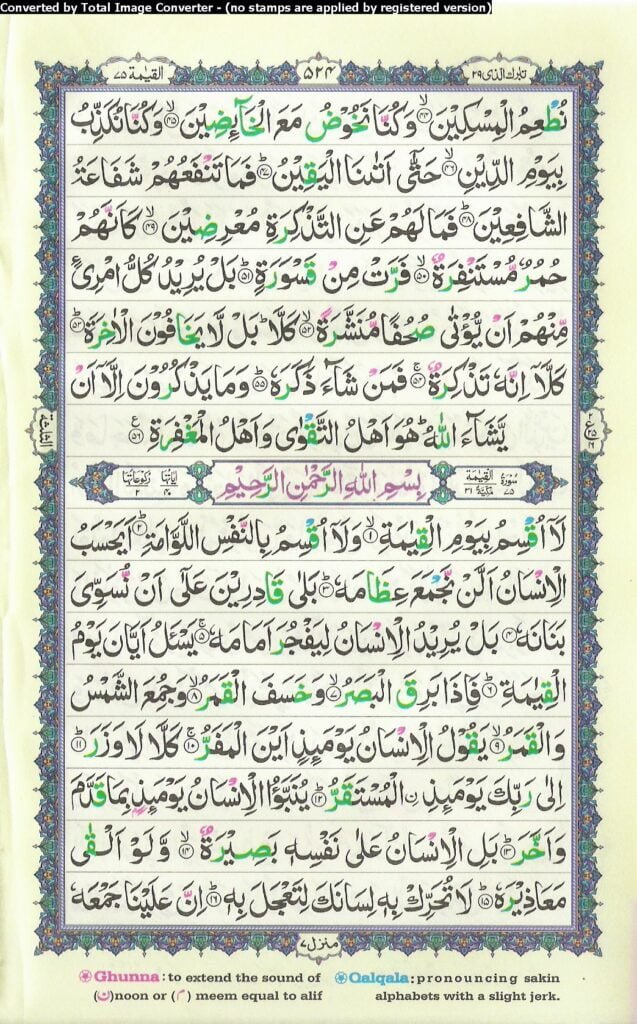 Converted by Total Image Converter - (no stamps are applied by registered version)
تبارك الذی ٢٩
٥٢٤
القیٰمة ٧٥
نُطْعِمُ الْمِسْكِيْنَ ۙ﴿۴۴﴾ وَكُنَّا نَخُوْضُ مَعَ الْخَآئِضِيْنَ ۙ﴿۴۵﴾ وَكُنَّا نُكَذِّبُ
بِيَوْمِ الدِّيْنِ ۙ﴿۴۶﴾ حَتّٰٓى اَتٰىنَا الْيَقِيْنُ ؕ﴿۴۷﴾ فَمَا تَنْفَعُهُمْ شَفَاعَةُ
الشَّافِعِيْنَ ؕ﴿۴۸﴾ فَمَا لَهُمْ عَنِ التَّذْكِرَةِ مُعْرِضِيْنَ ۙ﴿۴۹﴾ كَاَنَّهُمْ
حُمُرٌ مُّسْتَنْفِرَةٌ ۙ﴿۵۰﴾ فَرَّتْ مِنْ قَسْوَرَةٍ ؕ﴿۵۱﴾ بَلْ يُرِيْدُ كُلُّ امْرِئٍ
مِّنْهُمْ اَنْ يُّؤْتٰى صُحُفًا مُّنَشَّرَةً ۙ﴿۵۲﴾ كَلَّا ؕ بَلْ لَّا يَخَافُوْنَ الْاٰخِرَةَ ؕ﴿۵۳﴾
كَلَّآ اِنَّهٗ تَذْكِرَةٌ ۚ﴿۵۴﴾ فَمَنْ شَآءَ ذَكَرَهٗ ؕ﴿۵۵﴾ وَمَا يَذْكُرُوْنَ اِلَّآ اَنْ
يَّشَآءَ اللّٰهُ ؕ هُوَ اَهْلُ التَّقْوٰى وَاَهْلُ الْمَغْفِرَةِ ﴿۵۶﴾
سُوْرَةُ الْقِيٰمَةِ مَكِّيَّةٌ ٧٥ ٣١
بِسْمِ اللّٰهِ الرَّحْمٰنِ الرَّحِيْمِ
اٰيَاتُهَا ۴۰ رُكُوْعَاتُهَا ۲
لَآ اُقْسِمُ بِيَوْمِ الْقِيٰمَةِ ۙ﴿۱﴾ وَلَآ اُقْسِمُ بِالنَّفْسِ اللَّوَّامَةِ ؕ﴿۲﴾ اَيَحْسَبُ
الْاِنْسَانُ اَلَّنْ نَّجْمَعَ عِظَامَهٗ ؕ﴿۳﴾ بَلٰى قَادِرِيْنَ عَلٰٓى اَنْ نُّسَوِّىَ
بَنَانَهٗ ﴿۴﴾ بَلْ يُرِيْدُ الْاِنْسَانُ لِيَفْجُرَ اَمَامَهٗ ۚ﴿۵﴾ يَسْئَلُ اَيَّانَ يَوْمُ
الْقِيٰمَةِ ؕ﴿۶﴾ فَاِذَا بَرِقَ الْبَصَرُ ۙ﴿۷﴾ وَخَسَفَ الْقَمَرُ ۙ﴿۸﴾ وَجُمِعَ الشَّمْسُ
وَالْقَمَرُ ۙ﴿۹﴾ يَقُوْلُ الْاِنْسَانُ يَوْمَئِذٍ اَيْنَ الْمَفَرُّ ۚ﴿۱۰﴾ كَلَّا لَا وَزَرَ ؕ﴿۱۱﴾
اِلٰى رَبِّكَ يَوْمَئِذِ ِۨ الْمُسْتَقَرُّ ؕ﴿۱۲﴾ يُنَبَّؤُا الْاِنْسَانُ يَوْمَئِذٍۭ بِمَا قَدَّمَ
وَاَخَّرَ ؕ﴿۱۳﴾ بَلِ الْاِنْسَانُ عَلٰى نَفْسِهٖ بَصِيْرَةٌ ۙ﴿۱۴﴾ وَّلَوْ اَلْقٰى
مَعَاذِيْرَهٗ ؕ﴿۱۵﴾ لَا تُحَرِّكْ بِهٖ لِسَانَكَ لِتَعْجَلَ بِهٖ ؕ﴿۱۶﴾ اِنَّ عَلَيْنَا جَمْعَهٗ
منزل ٧
Ghunna: to extend the sound of
(ن) noon or (م) meem equal to alif
Qalqala: pronouncing sakin
alphabets with a slight jerk.